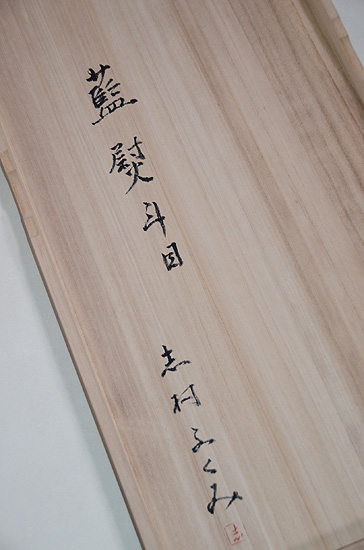 藍熨斗目
志村ふくみ
志